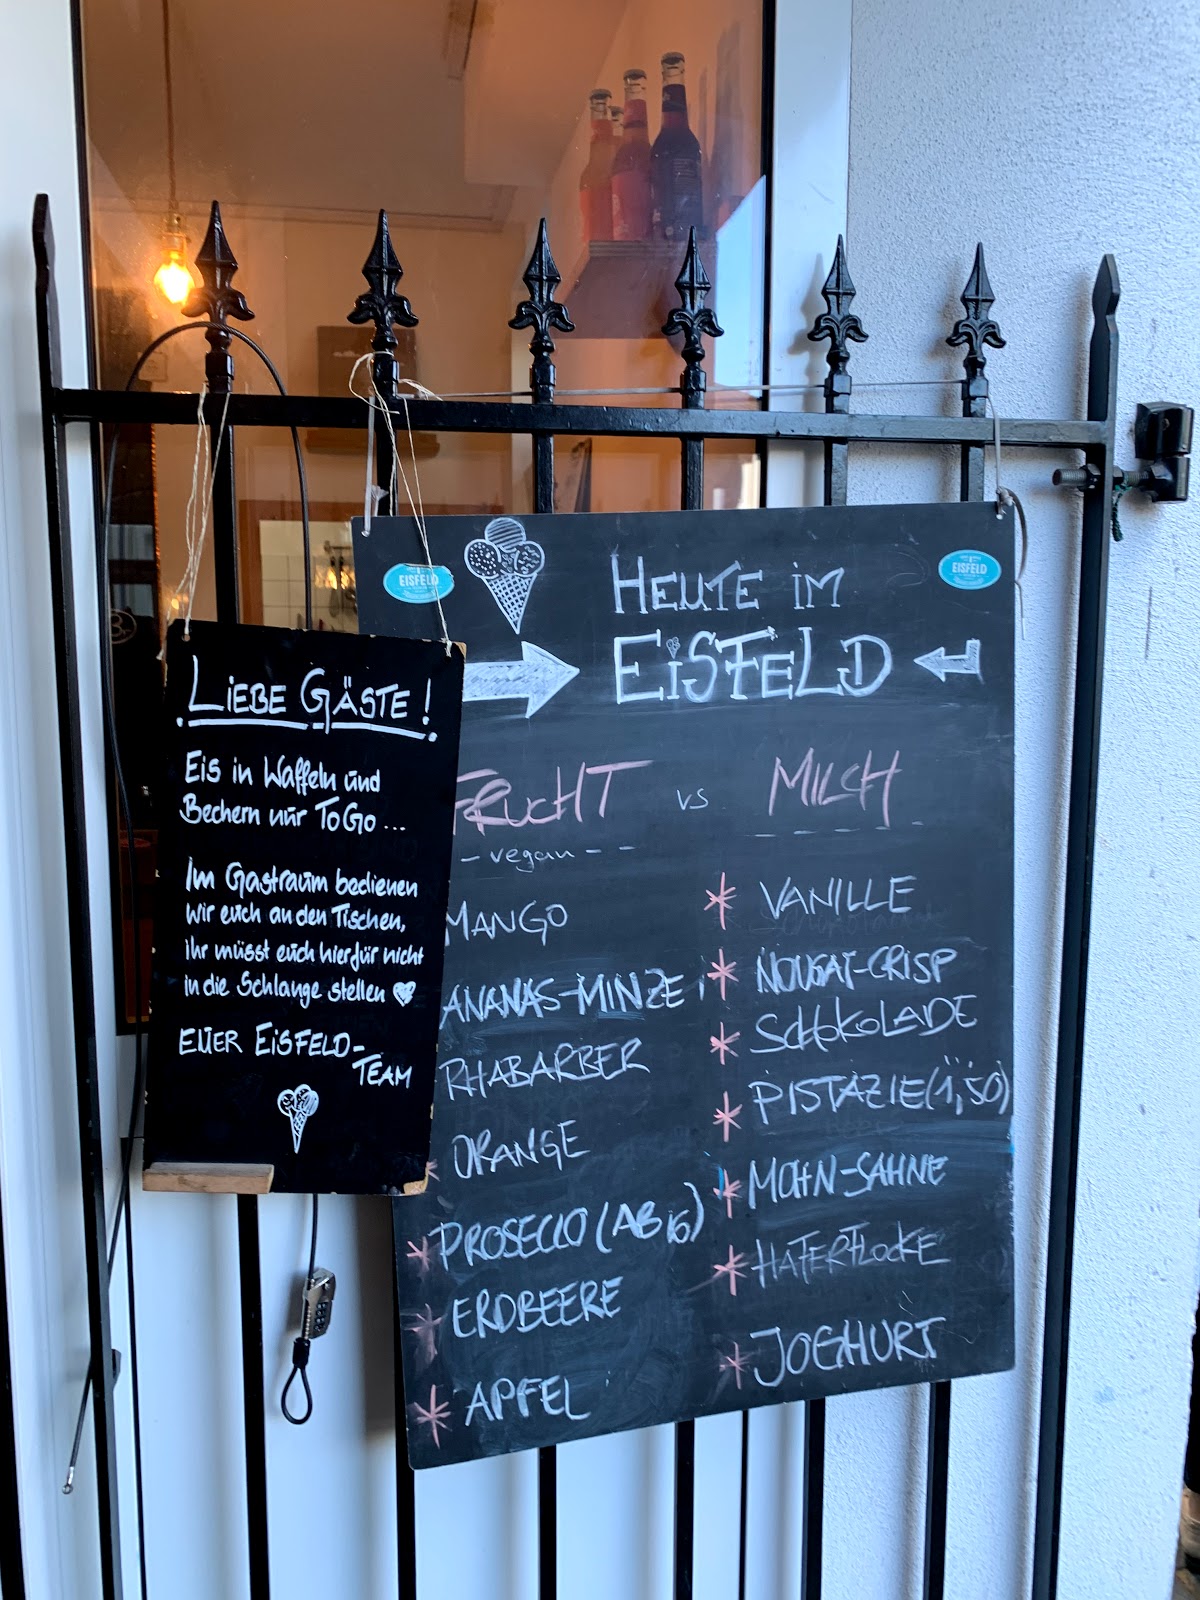 LIEBE GÄSTE!
Eis in Waffeln und
Bechern nur ToGo...
Im Gastraum bedienen
wir euch an den Tischen,
ihr müsst euch hierfür nicht
in die Schlange stellen
EUER EISFELD-
TEAM
EISFELD
EISFELD
HEUTE IM
EISFELD
FRUCHT vs MILCH
- vegan - -
MANGO
ANANAS-MINZE
RHABARBER
ORANGE
PROSECCO (AB 16)
ERDBEERE
APFEL
VANILLE
NOUGAT-CRISP
SCHOKOLADE
PISTAZIE (1,50)
MOHN-SAHNE
HAFERFLOCKE
JOGHURT